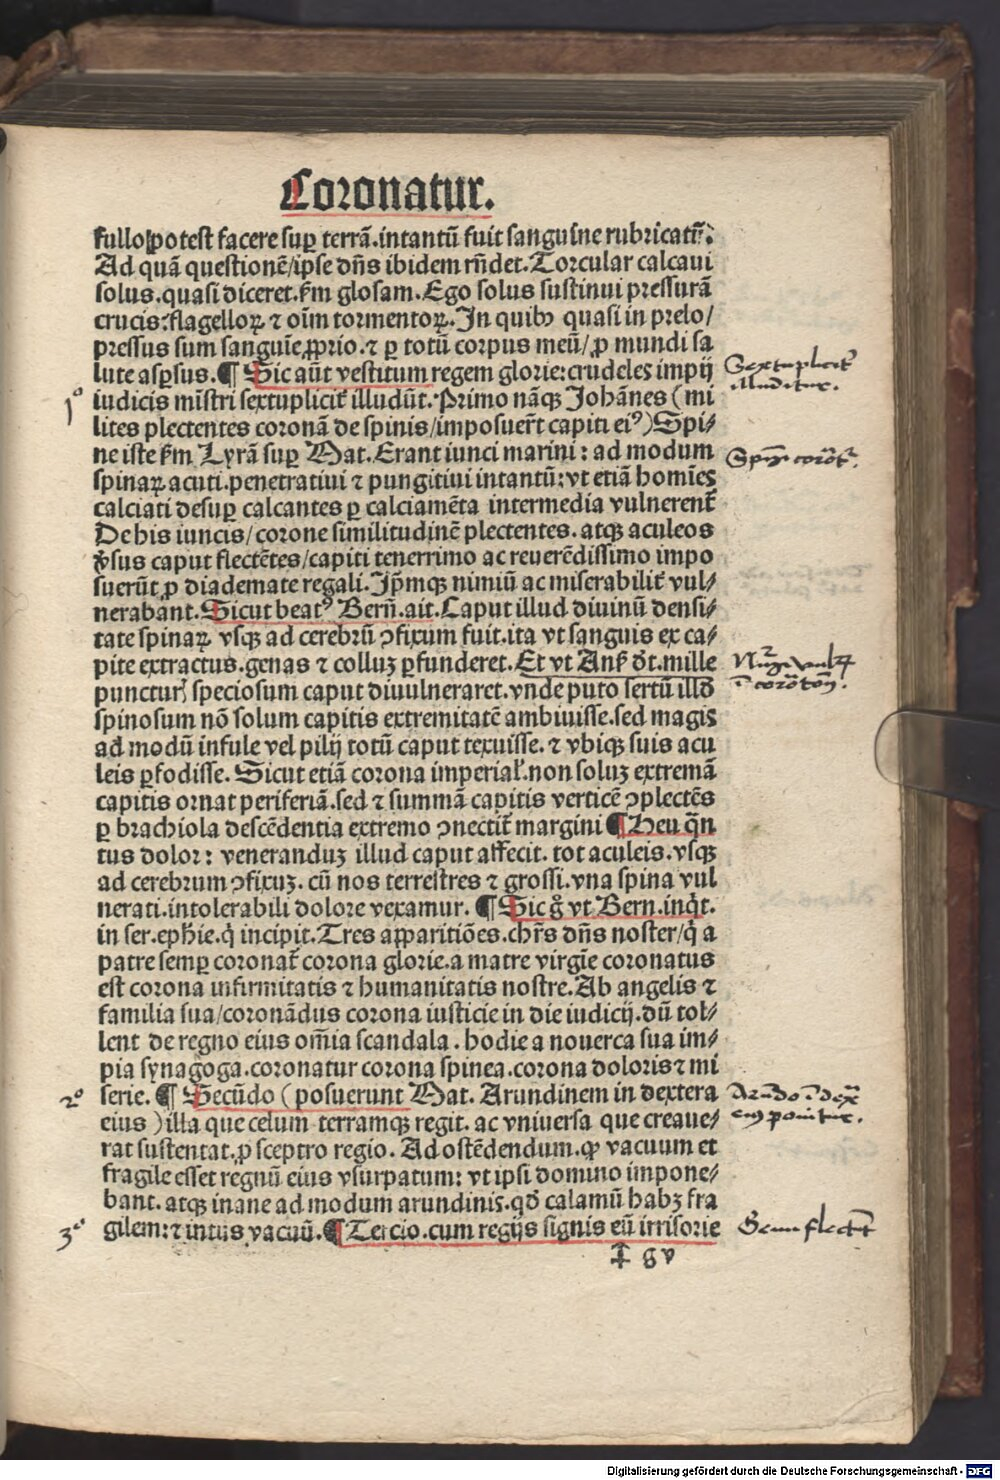 Coronatur.
fullo potest facere suꝑ terrā.intantū fuit sanguine rubricatꝰ.
Ad quā questionē/ipse dn̄s ibidem rn̄det.Torcular calcaui
solus.quasi diceret.ẜm glosam.Ego solus sustinui pressurā
crucis:flagelloꝝ ⁊ oīm tormentoꝝ.In quibꝰ quasi in prelo/
pressus sum sanguīe ꝓprio.⁊ ꝑ totū corpus meū/ꝓ mundi sa
lute asꝑsus.¶ Sic aūt vestitum regem glorie:crudeles impij
Sextuplicit̄
illuditur.
1º
iudicis mīstri sextuplicit̄ illudūt.Primo nāqꝫ Johānes (mi
lites plectentes coronā de spinis/imposuer̄t capiti eiꝰ)Spi⸗
ne iste ẜm Lyrā suꝑ Mat.Erant iunci marini: ad modum
spinaꝝ acuti.penetratiui ⁊ pungitiui intantū:vt etiā homīes
calciati desuꝑ calcantes ꝑ calciamēta intermedia vulnerent̄
De his iuncis/corone similitudinē plectentes.atqꝫ aculeos
v̄sus caput flectētes/capiti tenerrimo ac reuerēdissimo impo
suerūt ꝓ diademate regali.Ip̄mqꝫ nimiū ac miserabilit̄ vul⸗
nerabant.Sicut beatꝰ Bern̄.ait.Caput illud diuinū densi⸗
tate spinaꝝ vsqꝫ ad cerebrū ꝯfixum fuit.ita vt sanguis ex ca⸗
pite extractus.genas ⁊ colluꝫ ꝑfunderet.Et vt Anẜ.d̄t.mille
puncturꝭ speciosum caput diuulneraret.vnde puto sertū illd̄
spinosum nō solum capitis extremitatē ambiuisse.sed magis
ad modū infule vel pilij totū caput texuisse.⁊ vbiqꝫ suis acu
leis ꝑfodisse.Sicut etiā corona imperial̄.non soluꝫ extremā
capitis ornat periferiā.sed ⁊ summā capitis verticē ꝯplectēs
ꝑ brachiola descēdentia extremo ꝯnectit̄ margini ¶ Heu q̄n
tus dolor: veneranduꝫ illud caput affecit.tot aculeis.vsqꝫ
ad cerebrum ꝯfixuꝫ.cū nos terrestres ⁊ grossi.vna spina vul
nerati.intolerabili dolore vexamur.¶ Sic gͦ vt Bern.inq̄t.
in ser.epħie.q̇ incipit.Tres apparitiōes.chr̄s dn̄s noster/q̇ a
patre semꝑ coronat̄ corona glorie.a matre virgīe coronatus
est corona infirmitatis ⁊ humanitatis nostre.Ab angelis ⁊
familia sua/coronādus corona iusticie in die iudicij.dū tol⸗
lent de regno eius om̄ia scandala.hodie a nouerca sua im⸗
pia synagoga.coronatur corona spinea.corona doloris ⁊ mi
2º
serie.¶ Secūdo (posuerunt Mat.Arundinem in dextera
eius )illa que celum terramqꝫ regit.ac vniuersa que creaue⸗
rat sustentat.ꝓ sceptro regio.Ad ostēdendum.ꝙ vacuum et
fragile esset regnū eius vsurpatum: vt ipsi domino impone⸗
bant.atqꝫ inane ad modum arundinis.qd̄ calamū habꝫ fra
3º
gilem:⁊ intus vacuū.¶ Tercio.cum regijs signis eū irrisorie
Genu flectēt
gv
Digitalisierung gefördert durch die Deutsche Forschungsgemeinschaft - DFG